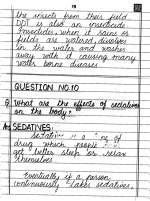 18
the insects from their field
DDT is also an insecticide
Insecticides when it rains or
fields are watered dissolves
in the water and washes
away with it causing many
water borne diseases
QUESTION NO.10
Q. What are the effects of sedatives
on the body?
Ans SEDATIVES:
Sedative is a type of
drug which people
get better sleep or relax
themselves
Eventually if a person
continuously takes sedatives,